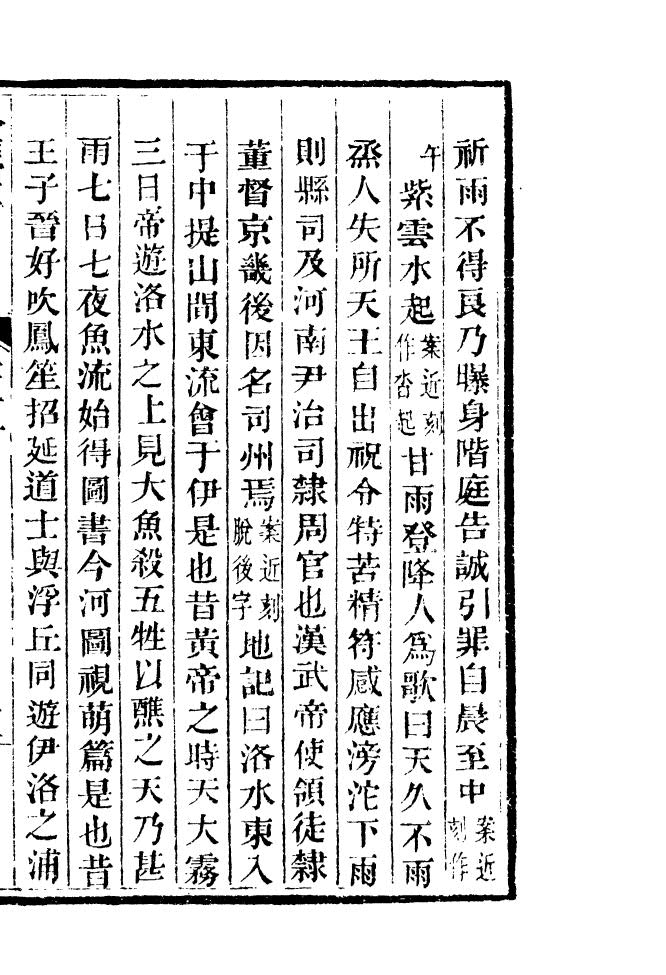 祈雨不得良乃曝身階庭告誠引罪自晨至中案近刻作
午紫雲水起案近刻作沓起甘雨登降人為歌曰天久不雨
烝人失所天王自出祝令特苦精符感應滂沱下雨
則縣司及河南尹治司隸周官也漢武帝使領徒隸
董督京畿後因名司州焉案近刻脫後字地記曰洛水東入
于中提山間東流會于伊是也昔黃帝之時天大霧
三日帝遊洛水之上見大魚殺五牲以醮之天乃甚
雨七日七夜魚流始得圖書今河圖視萌篇是也昔
王子晉好吹鳳笙招延道士與浮丘同遊伊洛之浦